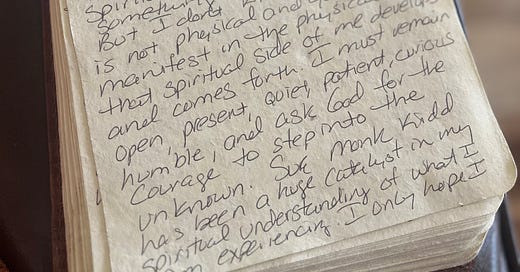 Spiri
something
But I don't
is not physical and
manifest in the physical
that spiritual side of me develops
and comes forth. I must remain
open, present, quiet, patient, curious
humble, and ask God for the
courage to step into the
unknown. Sue Monk Kidd
has been a huge catalyst in my
spiritual understanding of what I
am experiencing. I only hope I